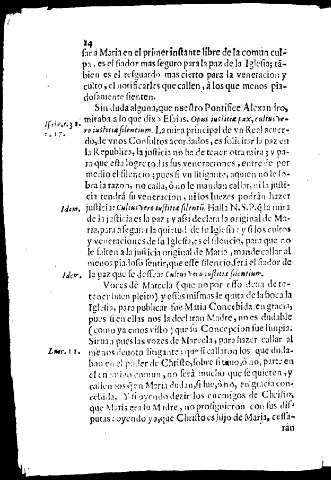 14
far a Maria en el primer instante libre de la comun cul-
pa, es el fiador mas seguro para la paz de la Iglesia; tã-
bien es el resguardo mas cierto para la veneracion y
culto, el notificarles que callen, à los que menos pia-
dosamente sienten.
Sin duda alguna, que nuestro Pontifice Alexandro,
miraba à lo que dixo Esaias. Opus iustitiæ pax, cultus ve-
ro iustitiæ silentium. La mira principal de vn Real acuer-
do, de vnos Consultos acordados, es solicitar la paz en
la Republica, la justicia no ha de tener otra mira; y pa-
ra que esta logre todas sus veneraciones, entre de por
medio el silencio; pues si vn litigante, aquien no le so-
bra la razon, no calla, ò no le mandan callar, ni la justi-
cia tendrà su veneracion, ni los Iuezes podràn hazer
Idem. justicia: Cultus vero iustitiæ silentiũ. Halla N.S.P. q̃ la mira
de la justicia es la paz; y assi declara la original de Ma-
ria, para assegurar la quietud de su Iglesia: y si los cultos
y veneraciones de su Iglesia, es el silencio, para que no
le falten a la justicia original de Maria, mande callar al
menos piadoso sentir, que este silencio, serà el fiador de
Idem. la paz que se dessea: Cultus vero iustitiæ silentium.
Vozes dè Marcela (que no por esso dexa de te-
tener buen pleito) y essas mismas le quita de la boca la
Iglesia, para publicar fue Maria Concebida en gracia,
pues si en ellas nos la declara Madre, no es dudable
(como ya emos visto) que su Concepcion fue limpia.
Sirva pues las vozes de Marcela, para hazer callar al
Luc. 11. menos devoto litigante: que si callaron los que duda-
ban en el poder de Christo, sobre si tuvo, ò no, parte en
el comun, no serà mucho que se quieten, y
callen los q̃ en Maria dudan, si fue, ò no, en gracia con-
cebida. Y si oyendo dezir los enemigos de Christo,
que Maria era su Madre, no prosiguieron con sus dis-
putas: oyendo ya, que Christo es hijo de Maria, cessa-
ràn